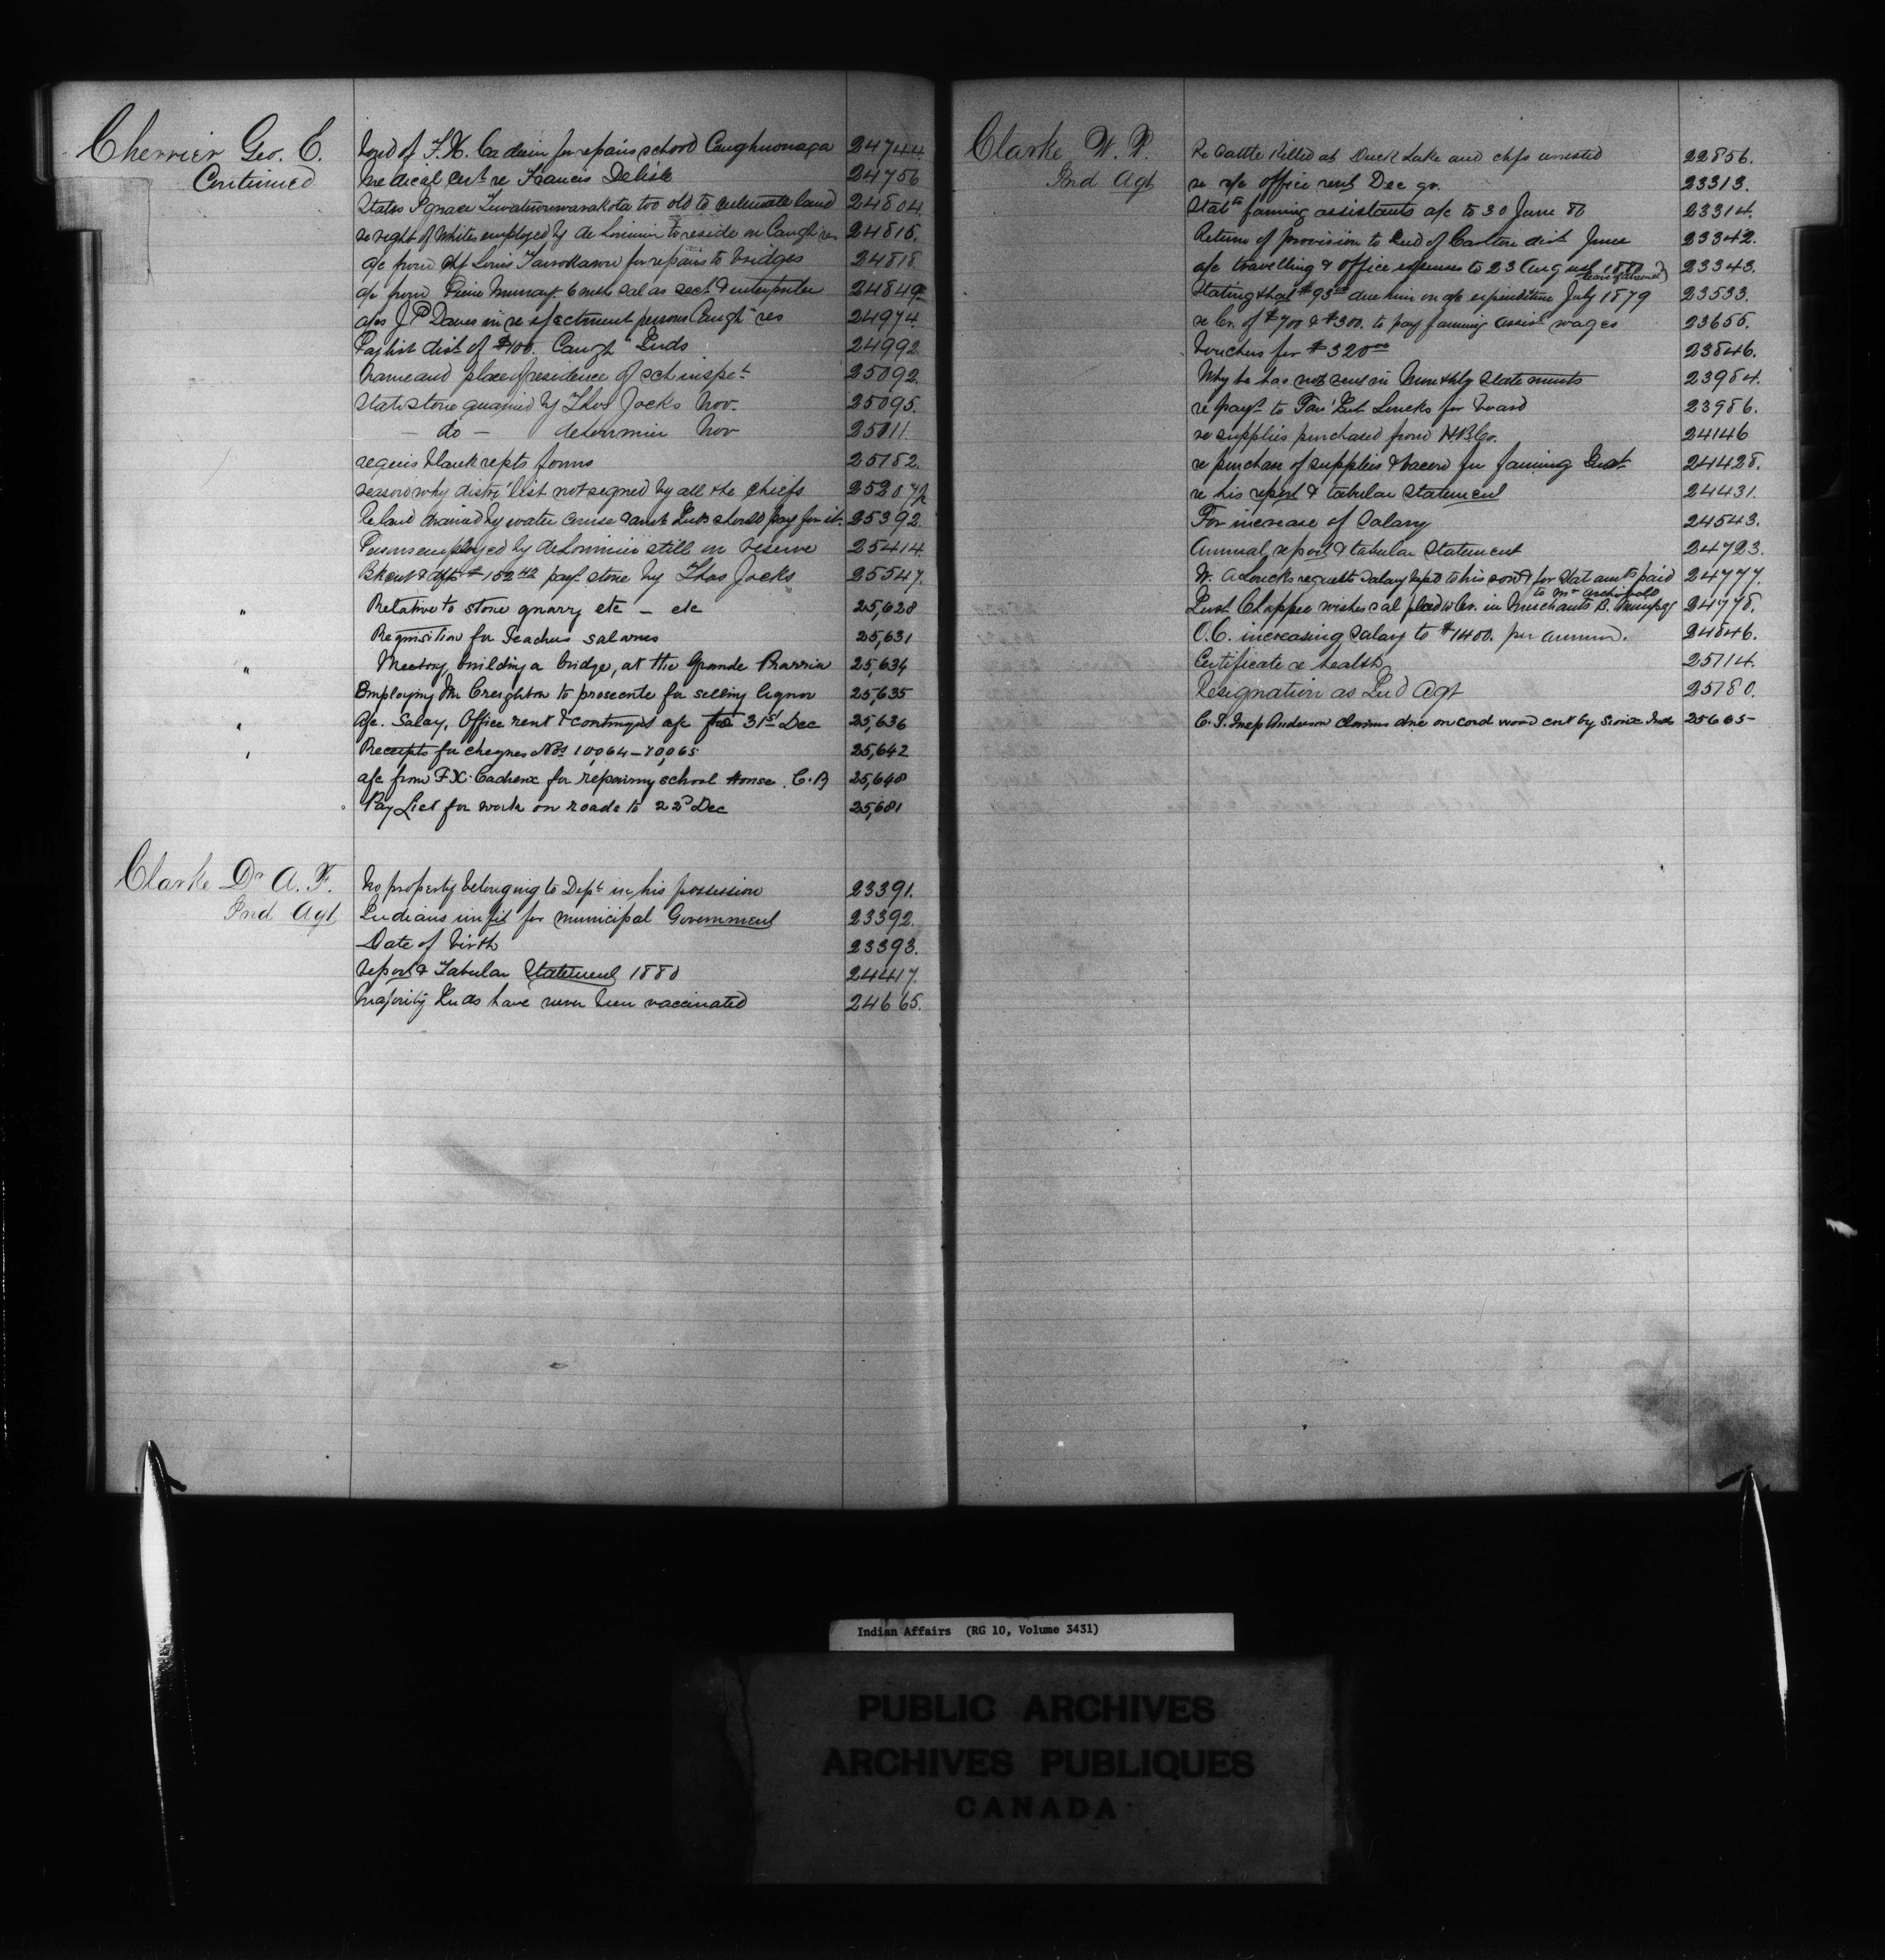 Cherrier Geo. E.
Continued
Acct of F. X. Cadieux for repairs school Caughnawaga 24744.
Medical Cert re Francis Delisle 24756
States Ignace too old to cultivate land 24804.
re right of Whites employed by de Lorimier to reside on Caugh res 24815.
a/c from Chf Louis for repairs to bridges 24818
a/c from Murray 6 mths sal as sect & interpreter 24849
a/cs J P Davis in re ejectment persons Caugha res 24974.
Pay list dist of $100. Caugha Inds 24992.
Name and place of residence of sch inspet 25092.
State stone quarried by Thos Jocks Nov. 25095.
— do — delorimier Nov 25011.
requis blank repts forms 25182.
reason why distri' list not signed by all the chiefs 25207½
Re land drained by water course & amt Inds should pay for it. 25392
Persons employed by deLorimier still on reserve 25414.
Bk cert & dft $152 42 payt stone by Thos Jocks 25547.
" Relative to stone quarry etc — etc 25,628
Requisition for Teachers salaries 25,631
" Meeting, building a bridge, at the Grande Prairie 25,634
Employing Mr Creighton to prosecute for selling liquor 25,635
" a/c. Salary, Office rent & contingt a/c to 31st Dec 25,636
" Receipts for cheques Nos 10,064 – 10,065 25,642
a/c from F X. Cadieux for repairing school House. 25,648
Pay List for work on roads to 22d Dec 25,681
Clarke Dr A. F.
Ind Agt
No property belonging to Dept in his possession 23391.
Indians unfit for municipal Government 23392.
Date of birth 23393.
report & Tabular Statement 1880 24417.
Majority Inds have never been vaccinated 24665.
Clarke W. P.
Ind Agt
Re Cattle Killed at Duck Lake and chfs arrested 22856.
re a/c office rent Dec qr. 23313.
Statt farming assistants a/c to 30 June 80 23314.
Returns of provision to Ind of Carlton dist June 23342.
a/c travelling & office expenses to 23 August 1880 23343.
(leave of absence)
Stating that $93 due him on a/c expenditure July 1879 23533.
re Cr. of $700 & $300. to pay farming assist wages 23655.
Vouchers for $320 00 23846.
Why he has not sent in Monthly Statements 23984.
re payt to Far' Inst Loucks for board 23986.
re supplies purchased from H.B.Co. 24146
re purchase of supplies & bacon for farming Inst. 24428.
re his report & tabular statement 24431.
For increase of Salary 24543.
Annual report & tabular Statement 24723.
W. A Loucks requests salary kept to his son & for Stat amts paid 24777.
to Mr Archibald
Inst Chaffee wishes sal placed to Cr. in Merchants B. Winnipeg 24778.
O.C. increasing Salary to $1400. per annum. 24846.
Certificate re health 25114.
Resignation as Ind Agt 25180.
Anderson claims due on cord wood cut by Sioux Inds 25665
Indian Affairs (RG 10, Volume 3431)
PUBLIC ARCHIVES
ARCHIVES PUBLIQUES
CANADA